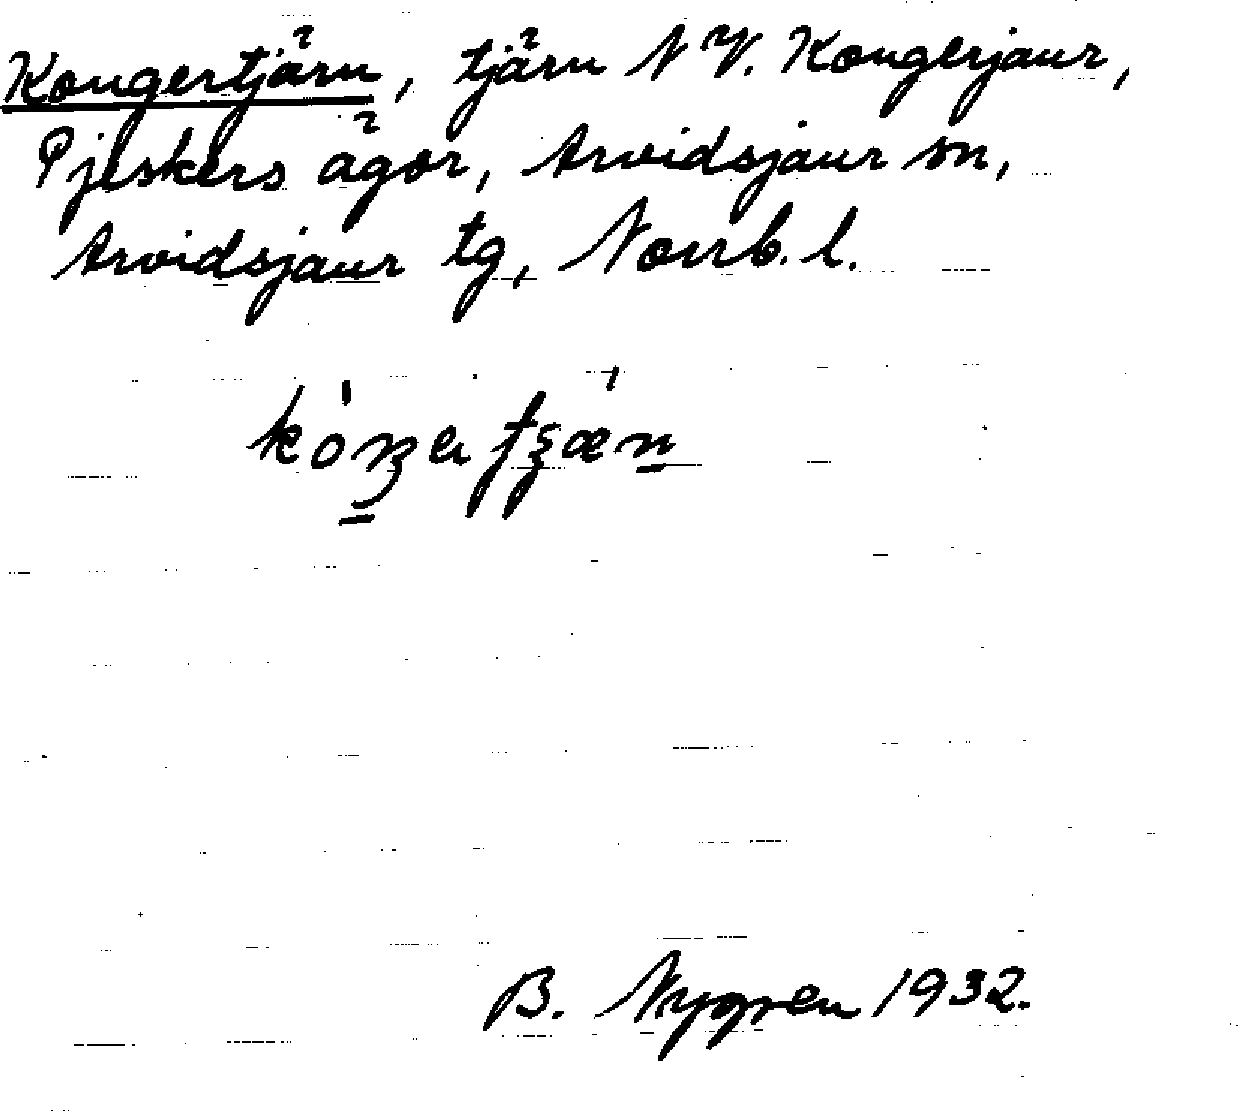 Kongertjärn, tjärn NV. Kongerjaur,
Pjeskers ägor, Arvidsjaur sn,
Arvidsjaur tg, Norrb. l.
B. Nygren 1932.